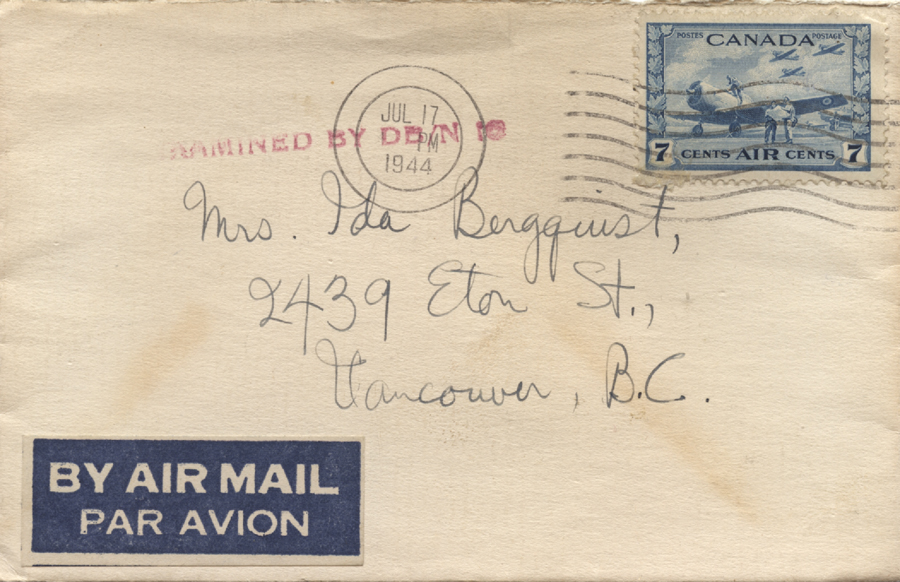 POSTES CANADA POSTAGE
7 CENTS AIR CENTS 7
JUL 17
PM
1944
EXAMINED BY DB/N
Mrs. Ida Bergquist,
2439 Eton St.,
Vancouver, B.C.
BY AIR MAIL
PAR AVION